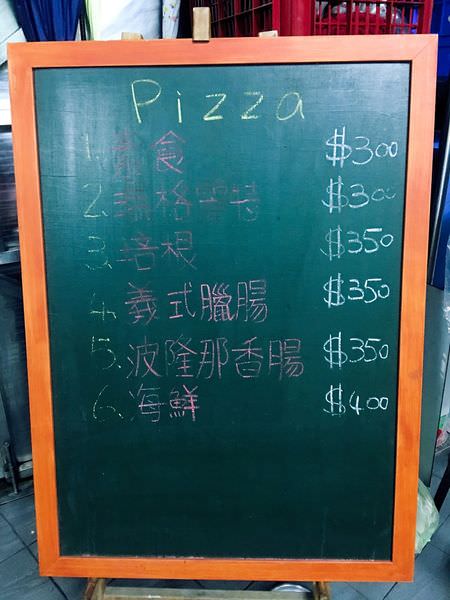 Pizza
1. 素食 $300
2. 瑪格雷特 $300
3. 培根 $350
4. 義式臘腸 $350
5. 波隆那香腸 $350
6. 海鮮 $400